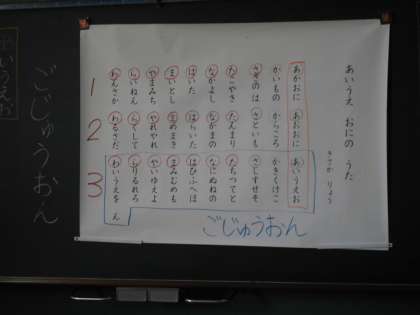 あいうえ おにの うた
きさか りょう
あかおに あおおに あいうえお
かいもの からころ かきくけこ
ささのは さといも さしすせそ
たこやき たんまり たちつてと
なかよし なかまの なにぬねの
はいた はらいた はひふへほ
まいとし まめまき まみむめも
やまみち やれやれ やいゆえよ
らいねん らくして らりるれろ
わんさか わるさだ わいうえを ん
1
2
3
ごじゅうおん
ごじゅうおん
いうえお